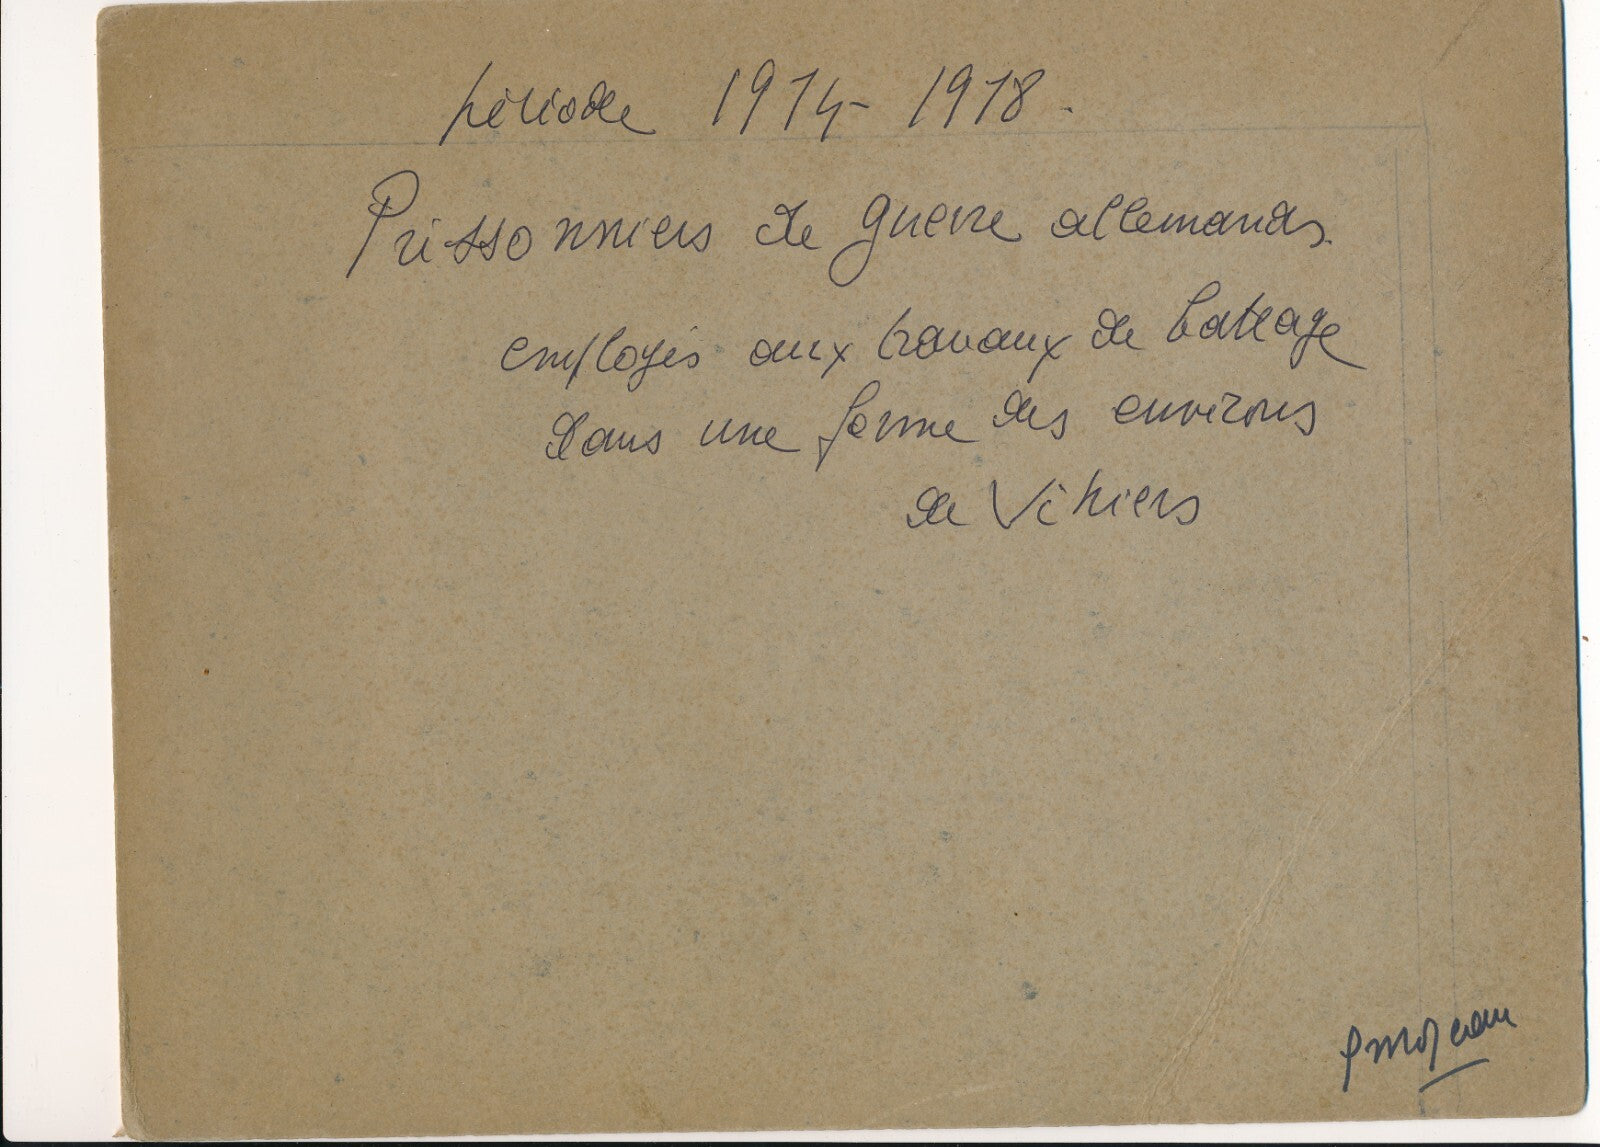 période 1914-1918.
Prissonniers de guerre allemands.
employés aux travaux de battage
dans une ferme des environs
de Vihiers